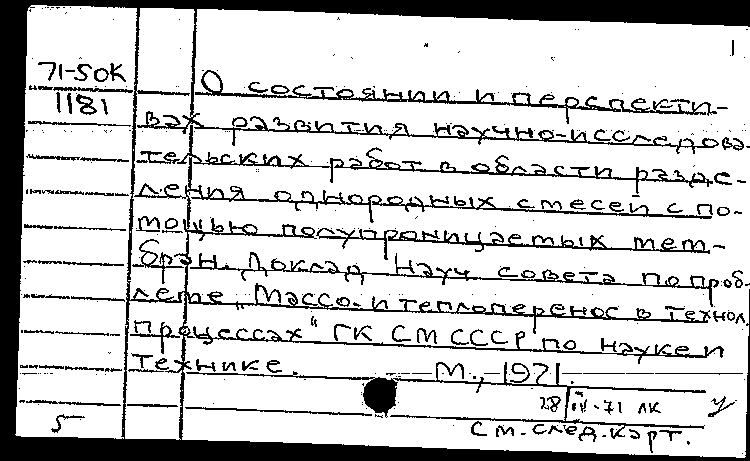 1
71-50К
1181
О состоянии и перспекти-
вах развития научно-исследова-
тельских работ в области разде-
ления однородных смесей с по-
мощью полупроницаемых мем-
бран. Доклад Науч. совета по проб-
леме „Массо- и теплоперенос в технол.
процессах“ ГК СМ СССР по науке и
технике. М., 1971.
28/IV-71 ЛК
5
См. след. карт.